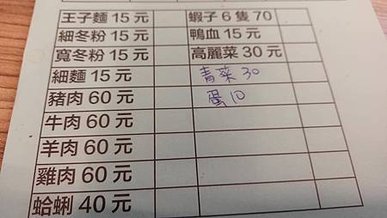 王子麵 15 元 蝦子 6 隻 70
細冬粉 15 元 鴨血 15 元
寬冬粉 15 元 高麗菜 30 元
細麵 15 元 青菜 30
豬肉 60 元 蛋 10
牛肉 60 元
羊肉 60 元
雞肉 60 元
蛤蜊 40 元